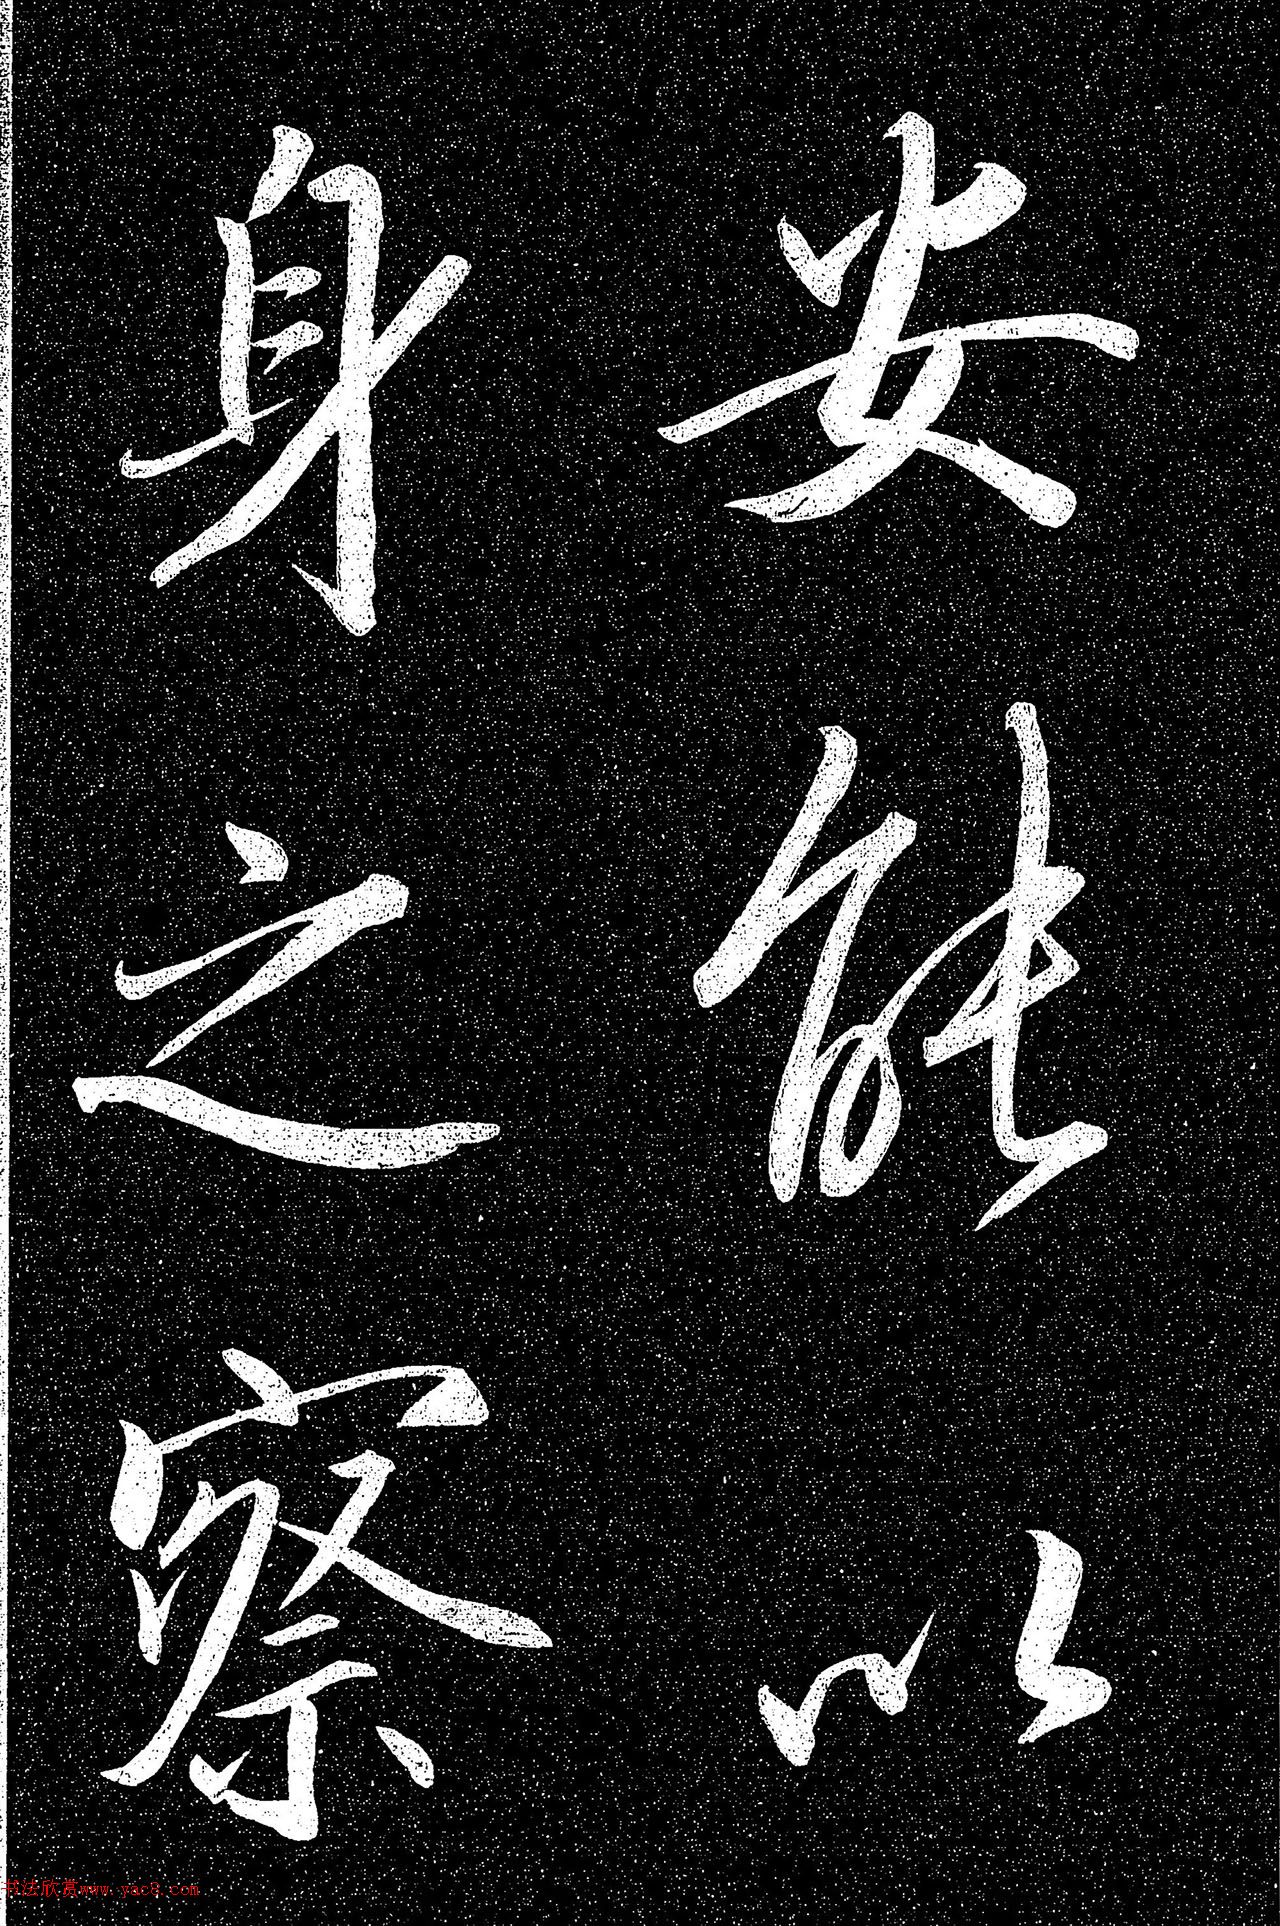 安能以
身之察
书法欣赏www.yac8.com